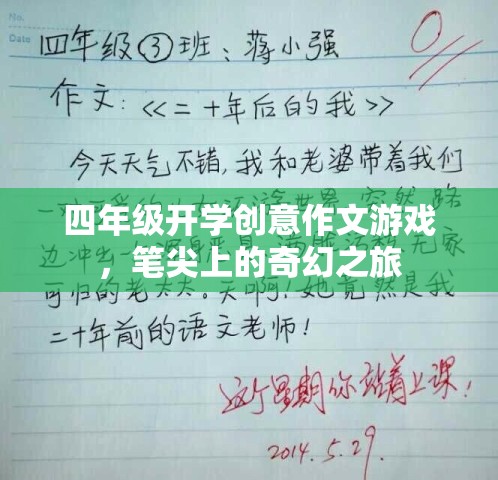 No.
Date
四年级③班：蒋小强
0
作文：《二十年后的我》
今天天气不错，我和老婆带着我们
四年级开学创意作文游戏
，笔尖上的奇幻之旅
边冲出一
无家
可归的老太太。天啊！她竟然是我
二十年前的语文老师！
这个星期你站着上课！
2014.5.29.